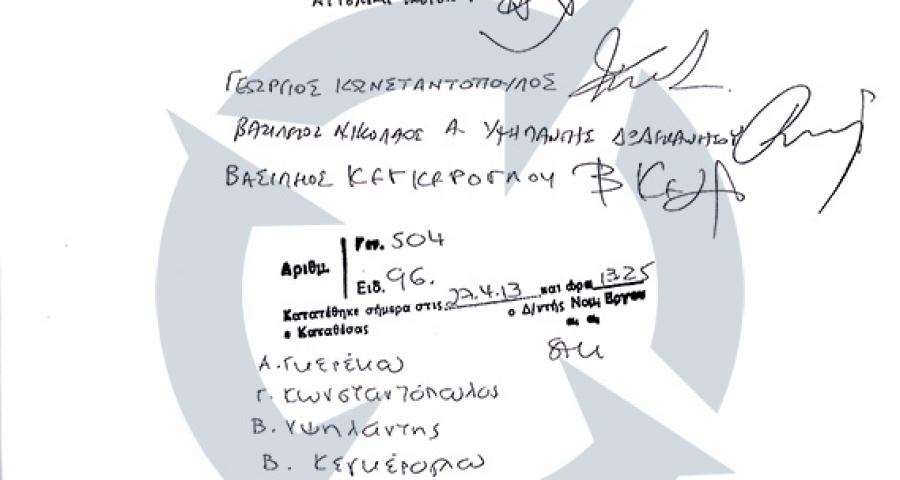 ΓΕΩΡΓΙΟΣ ΚΩΝΣΤΑΝΤΟΠΟΥΛΟΣ
ΒΑΣΙΛΕΙΟΣ ΝΙΚΟΛΑΟΣ Α ΥΨΗΛΑΝΤΗΣ ΔΩΔΕΚΑΝΗΣΟΥ
ΒΑΣΙΛΗΣ ΚΕΓΚΕΡΟΓΛΟΥ
Αριθμ.
Γεν. 504
Ειδ. 96.
Κατατέθηκε σήμερα στις 27.4.13 και ώρα 1325
ο Καταθέσας
ο Δ/ντής Νομ. Έργου
Α. Γκερέκου
Γ. Κωνσταντόπουλος
Β. Υψηλάντης
Β. Κεγκέρογλου